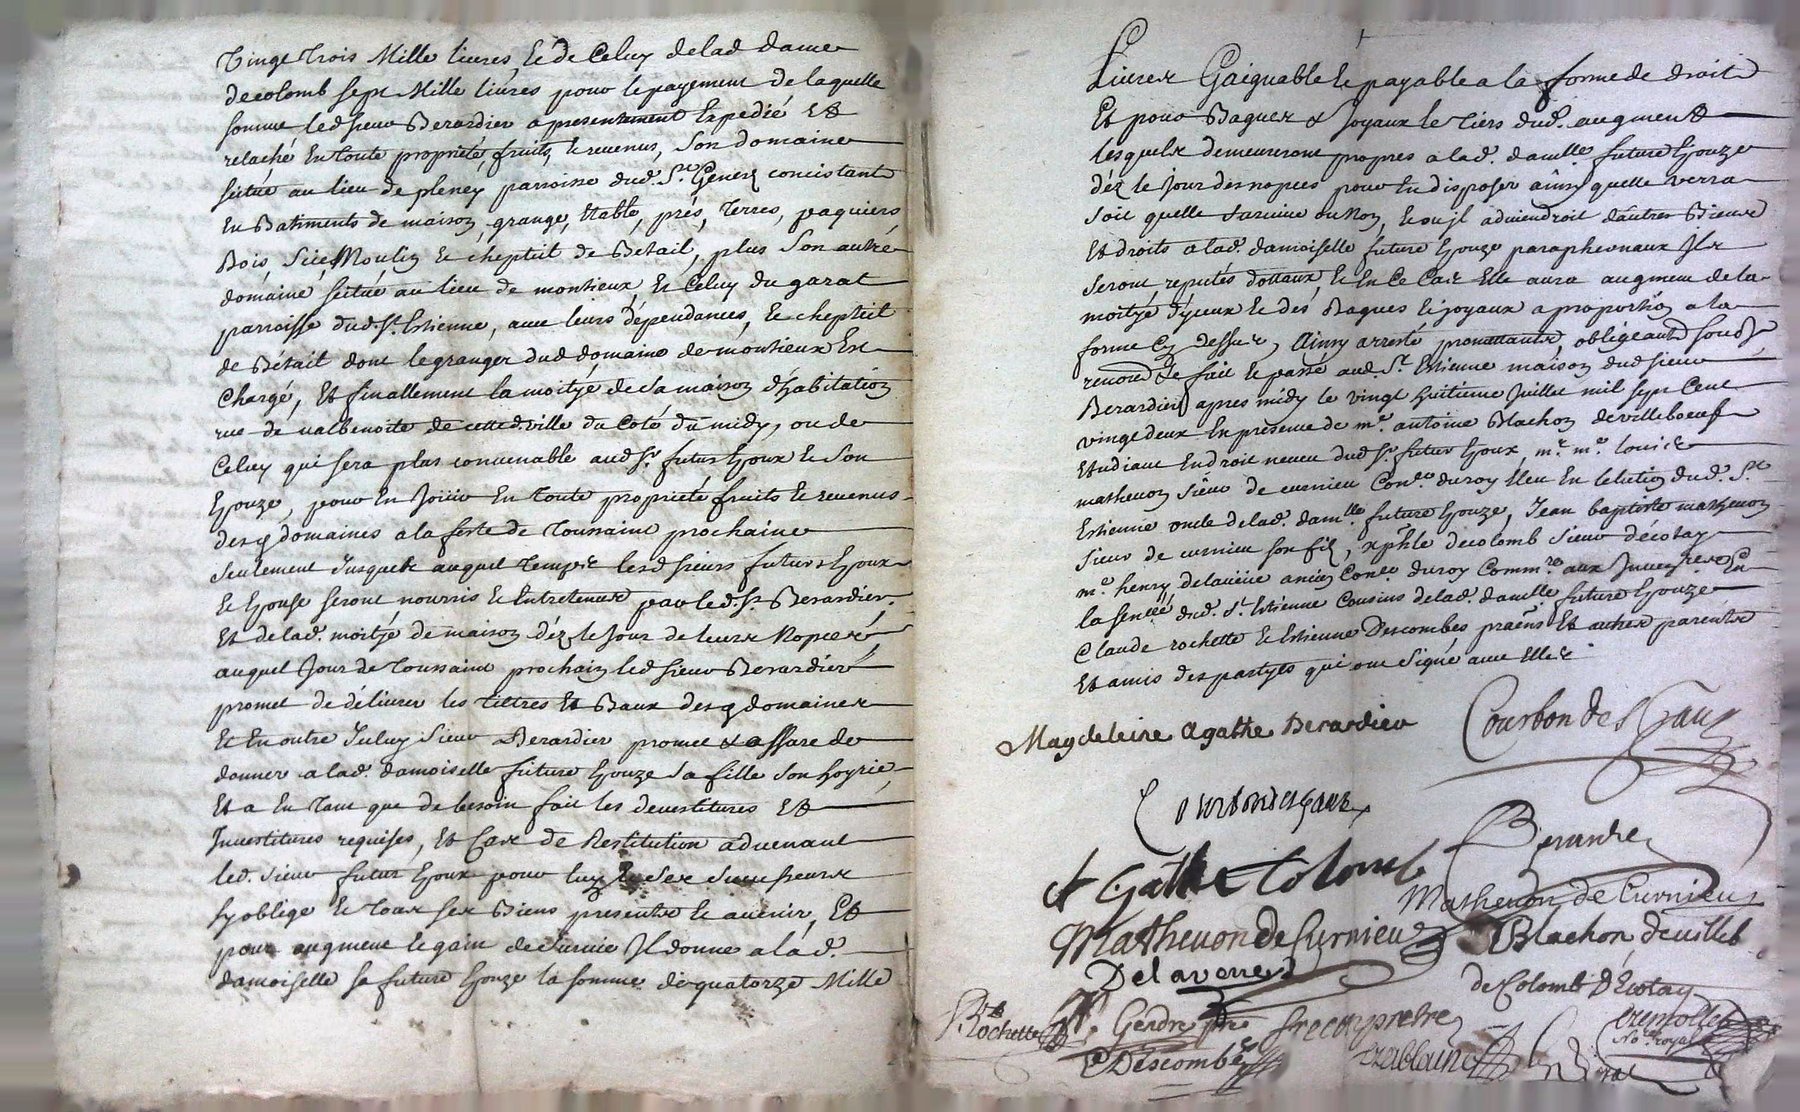 Vingt Trois Mille livres, et de Celuy de lad dame
decolomb sept Mille livres pour le payement de laquelle
somme led sieur Berardier a presentement Expedié Et
relaché En toute proprieté, fruits, & revenus, Son domaine
scitué au lieu de pleney parroisse dud. St. Genest concistant
En Batiments de maison, grange, Etable, prés, Terres, paquiers
Bois, Moulin & chepteil de Betail, plus Son autre
domaine scitué au lieu de montieux Et Celuy du garat
parroisse dud. St. Estienne, avec leurs dépendances, & chepteil
de Bétail dont le granger dud domaine de montieux Est
Chargé, Et finallement la moityé de Sa maison d'habitation
rue de valbenoite de cette d. ville du Coté du midy, ou de
Celuy qui sera plus convenable aud Sr. futur Epoux & Son
Epouze, pour En Joüir En toute proprieté fruits & revenus
desq domaines a la feste de Toussaint prochaine
seulement Jusques auquel Temps lesd sieurs futurs Epoux
& Epouse seront nourris & Entretenus par led. Sr. Berardier.
Et de lad. moityé de maison déz le Jour de leurs Nopces
auquel Jour de Toussaint prochain led sieur Berardier
promet de délivrer les tiltres Et Baux desq domaines
Et En outre Iceluy Sieur Berardier promet &
donner a lad. damoiselle future Epouze sa fille Son hoyrie,
Et a En Tant que de besoin fait les devestitures Et
Investitures requises, Et Cas de Restitution advenant
led. Sieur futur Epoux pour luy & Ses Successeurs
s'y oblige & tous ses Biens présents & avenir, Et
pour augment & gain de Survie Il donne a lad.
damoiselle sa future Epouze la somme de quatorze Mille
Livres Gaignable & payable a la forme de droit
Et pour Bagues & Joyaux le tiers dud. augment
lesquels demeureront propres a lad. damlle. future Epouze
déz le Jour des nopces pour En disposer ainsy quelle verra
soit quelle Survive ou Non, & ou jl adviendroit d'autres Biens
Et droits a lad. damoiselle future Epouze paraphernaux Jls
seront reputés dottaux, & En Ce Cas Elle aura augment de la
moityé d'yceux & des Bagues & joyaux a proportion a la
forme Cy dessus, Ainsy arresté promettants obligeants sousd
renond & fait & passé aud. St. Estienne maison dud sieur
Berardier apres midy le vingt huitieme Juillet mil sept Cent
vingt deux En présence de mr. antoine Blachon de villeboeuf
Etudiant En droit neveu dud Sr. futur Epoux, mr. me. louis
mathevon Sieur de curnieu Conler. du roy Eleu En lelution dud. St.
Estienne oncle de lad. damlle. future Epouze, Jean baptiste mathevon
sieur de curnieu son fils, xphle decolomb Sieur décotay
me. henry delavèüe ancien Conler. du roy Commre. aux
la Senéé. dud. St. Estienne Cousins de lad. damlle. future Epouze
Claude rochette & Estienne Descombes préns Et autres parents
Et amis des partyes qui ont Signé avec Elles.
Magdeleine Agathe Berardier Courbon de St Gaux
Berardier
Agathe Colomb
Mathevon de Curnieu
Mathevon de Curnieu Blachon deuilleb
De la verre
de Colomb D'Ecotay
Rochette Gerdre prestre
Descombes
No. royal